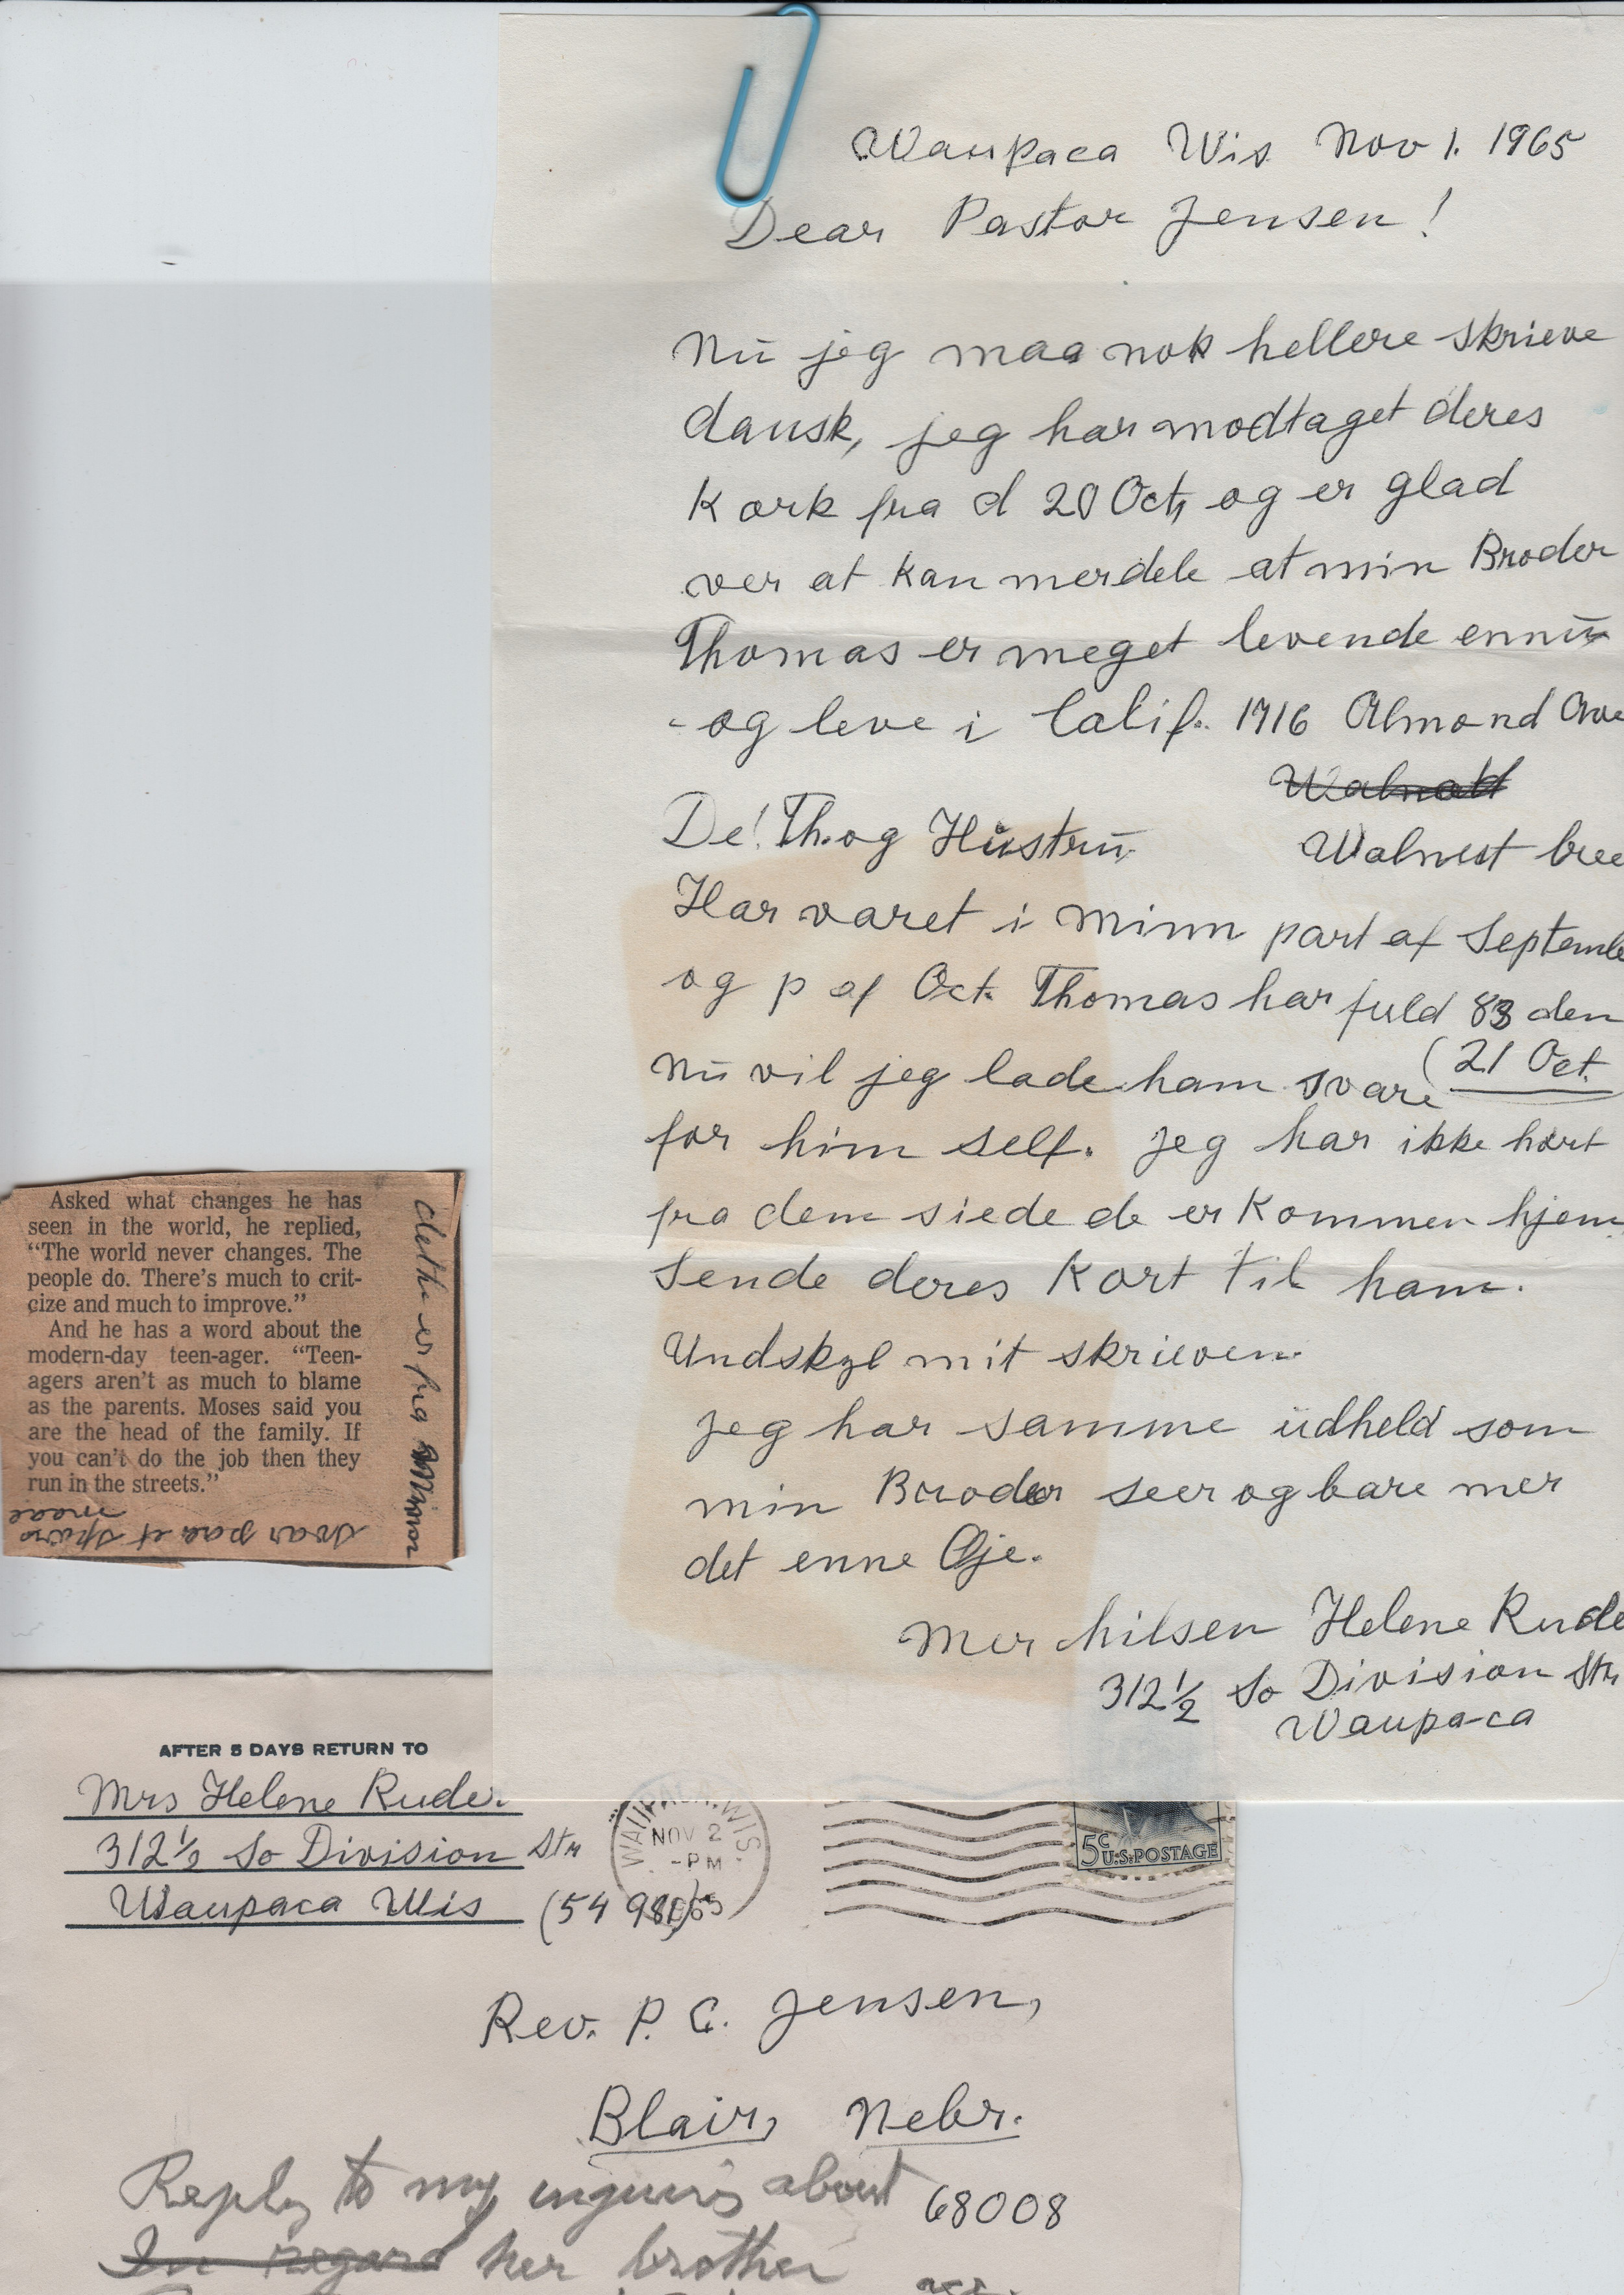 Waupaca Wis Nov 1. 1965
Dear Pastor Jensen!
Nū jeg maa nok hellere skrieve
dansk, jeg har modtaget deres
Kork fra d 20 Oct, og er glad
ver at kan merdele at min Broder
Thomas er meget levende ennū
- og leve i Calif. 1716 Almond Ave
Walnest
De! Th. og Hūstrū.
Har varet i Minn part af Septembe
og p af Oct. Thomas har fuld 83 den
(21 Oct.
Nū vil jeg lade ham svare
for him self. jeg har ikke hørt
fra dem siede de er Kommen hjem
Sende deres Kort til ham.
Undskyl mit skrieven.
jeg har samme ūdheld som
min Broder seer og bare mer
det enne Øje.
Mer hilsen Helene Rude
312½ So Division Str
Waupaca
Asked what changes he has
seen in the world, he replied,
“The world never changes. The
people do. There’s much to crit-
cize and much to improve.”
And he has a word about the
modern-day teen-ager. “Teen-
agers aren’t as much to blame
as the parents. Moses said you
are the head of the family. If
you can’t do the job then they
run in the streets.”
er fra Minn
svar paa et
AFTER 5 DAYS RETURN TO
Mrs Helene Rude.
312½ So Division Str
Waupaca Wis (54 981)
WAUPACA, WIS.
NOV 2
-PM
1965
5c
U.S. POSTAGE
Rev. P. C. Jensen,
Blair, Nebr.
68008
Reply to my inquiris about
In regard her brother